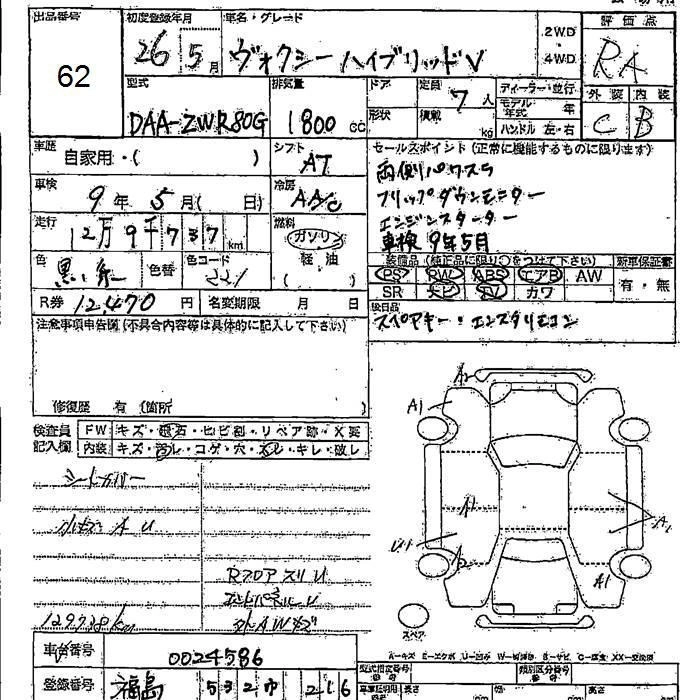 出品番号
62
初度登録年月
26 5月
車名・グレード
ヴォクシー ハイブリッドV
2WD
・
4WD
評価点
RA
外装 内装
C B
型式
DAA-ZWR80G
排気量
1800 cc
ドア
形状
定員
7人
積載
kg
ディーラー・並行
モデル年式 年
ハンドル 左・右
車歴
自家用・( )
シフト
AT
車検
9年 5月( 日)
冷房
AAC
走行
12万9千737km
燃料
ガソリン
軽油
色
黒
色替
色コード
221
R券 12,470円
名変期限 月 日
セールスポイント(正常に機能するものに限ります)
両側パワスラ
フリップダウンモニター
エンジンスターター
車検 9年5月
装備品(純正品に限り○をつけて下さい)
新車保証書
PS PW ABS エアB AW
有・無
SR ナビ TV カワ
後日品
スペアキー・エンスタリモコン
注意事項申告欄(不具合内容等は具体的に記入して下さい)
修復歴 有(箇所 )
検査員
記入欄
FW キズ・飛石・ヒビ割・リペア跡・X要
内装 キズ・汚レ・コゲ・穴・スレ・キレ・破レ
シートカバー
小キズ A U
RフロアスリU
129738km
A2
A1
A1
U1
A2
A2
A1
スペア
A=キズ E=エクボ U=凹み
車台番号
0024586
登録番号
福島 532 TA 216
型式指定番号
類別区分番号
長さ cm
幅 cm
高さ cm